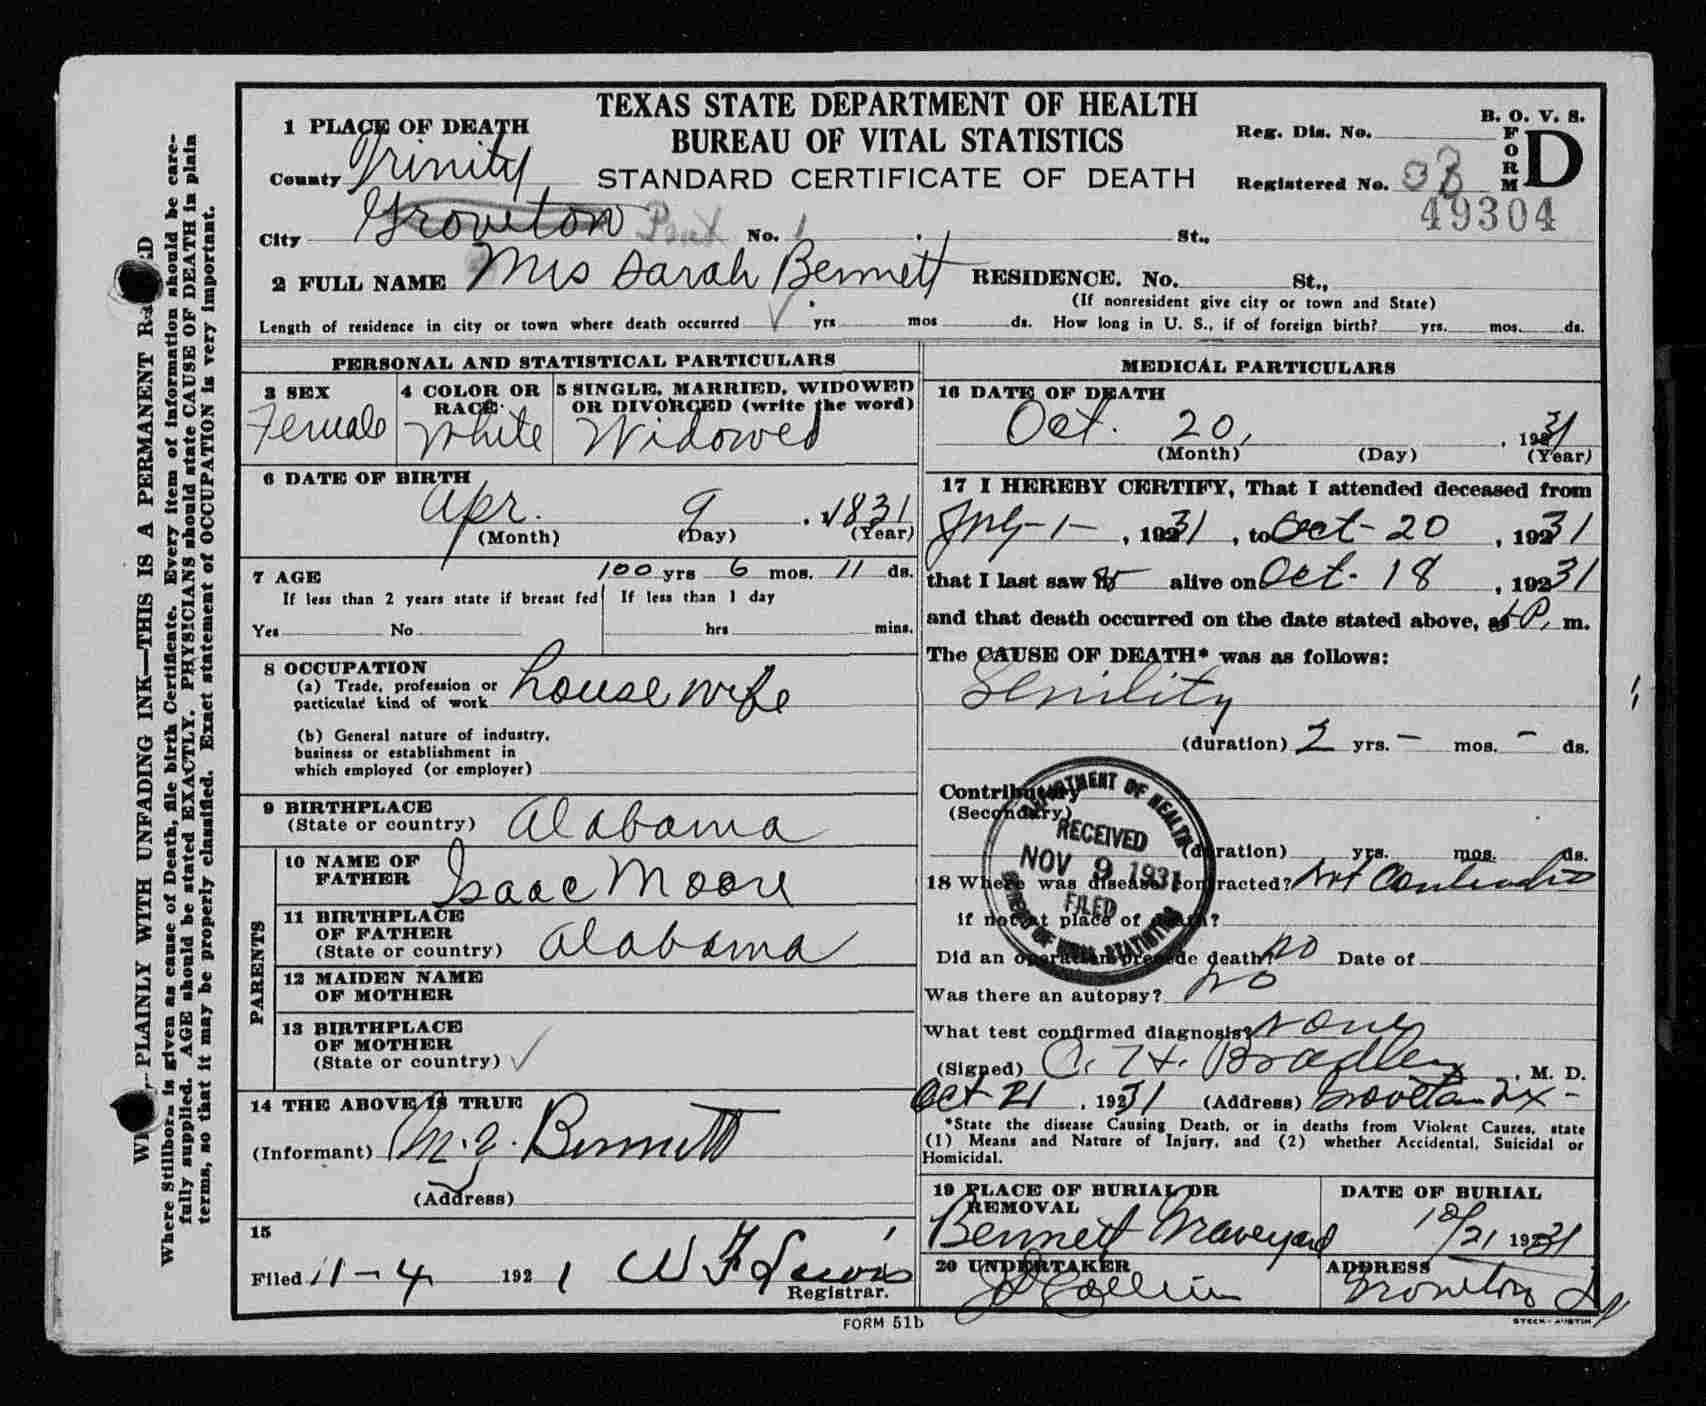 TEXAS STATE DEPARTMENT OF HEALTH
BUREAU OF VITAL STATISTICS
STANDARD CERTIFICATE OF DEATH
B. O. V. S.
FORM D
Reg. Dis. No.
Registered No.
49304
1 PLACE OF DEATH
County Trinity
City Groveton No. 1 St.,
2 FULL NAME Mrs Sarah Bennett RESIDENCE. No. St.,
(If nonresident give city or town and State)
Length of residence in city or town where death occurred yrs mos ds. How long in U. S., if of foreign birth? yrs. mos. ds.
PERSONAL AND STATISTICAL PARTICULARS
3 SEX
Female
4 COLOR OR RACE
White
5 SINGLE, MARRIED, WIDOWED
OR DIVORCED (write the word)
Widowed
6 DATE OF BIRTH
Apr. 9 1831
(Month) (Day) (Year)
7 AGE 100 yrs 6 mos. 11 ds.
If less than 2 years state if breast fed
Yes No
If less than 1 day
hrs mins.
8 OCCUPATION
(a) Trade, profession or
particular kind of work housewife
(b) General nature of industry,
business or establishment in
which employed (or employer)
9 BIRTHPLACE
(State or country) Alabama
PARENTS
10 NAME OF
FATHER Isaac Moore
11 BIRTHPLACE
OF FATHER
(State or country) Alabama
12 MAIDEN NAME
OF MOTHER
13 BIRTHPLACE
OF MOTHER
(State or country)
14 THE ABOVE IS TRUE
(Informant) Bennett
(Address)
15
Filed 11-4 1921 W F Lewis
Registrar.
MEDICAL PARTICULARS
16 DATE OF DEATH
Oct. 20, 1931
(Month) (Day) (Year)
17 I HEREBY CERTIFY, That I attended deceased from
July-1-, 1931, to Oct-20, 1931
that I last saw alive on Oct-18, 1931
and that death occurred on the date stated above, P. m.
The CAUSE OF DEATH* was as follows:
Senility
(duration) 2 yrs. - mos. - ds.
Contributory
(Secondary)
(duration) yrs. mos. ds.
DEPARTMENT OF HEALTH
RECEIVED
NOV 9 1931
FILED
BUREAU OF VITAL STATISTICS
18 Where was disease contracted? Not
if not at place of death?
Did an operation precede death? No Date of
Was there an autopsy? No
What test confirmed diagnosis? None
(Signed) Bradley, M. D.
Oct-21, 1931 (Address) Groveton Tx-
*State the disease Causing Death, or in deaths from Violent Causes, state
(1) Means and Nature of Injury, and (2) whether Accidental, Suicidal or
Homicidal.
19 PLACE OF BURIAL OR
REMOVAL
Bennett Graveyard
DATE OF BURIAL
10/21 1931
20 UNDERTAKER
ADDRESS
Groveton
FORM 51b
STECK-AUSTIN
PLAINLY WITH UNFADING INK—THIS IS A PERMANENT
Where Stillborn is given as cause of Death, file birth Certificate. Every item of information should be care-
fully supplied. AGE should be stated EXACTLY. PHYSICIANS should state CAUSE OF DEATH in plain
terms, so that it may be properly classified. Exact statement of OCCUPATION is very important.